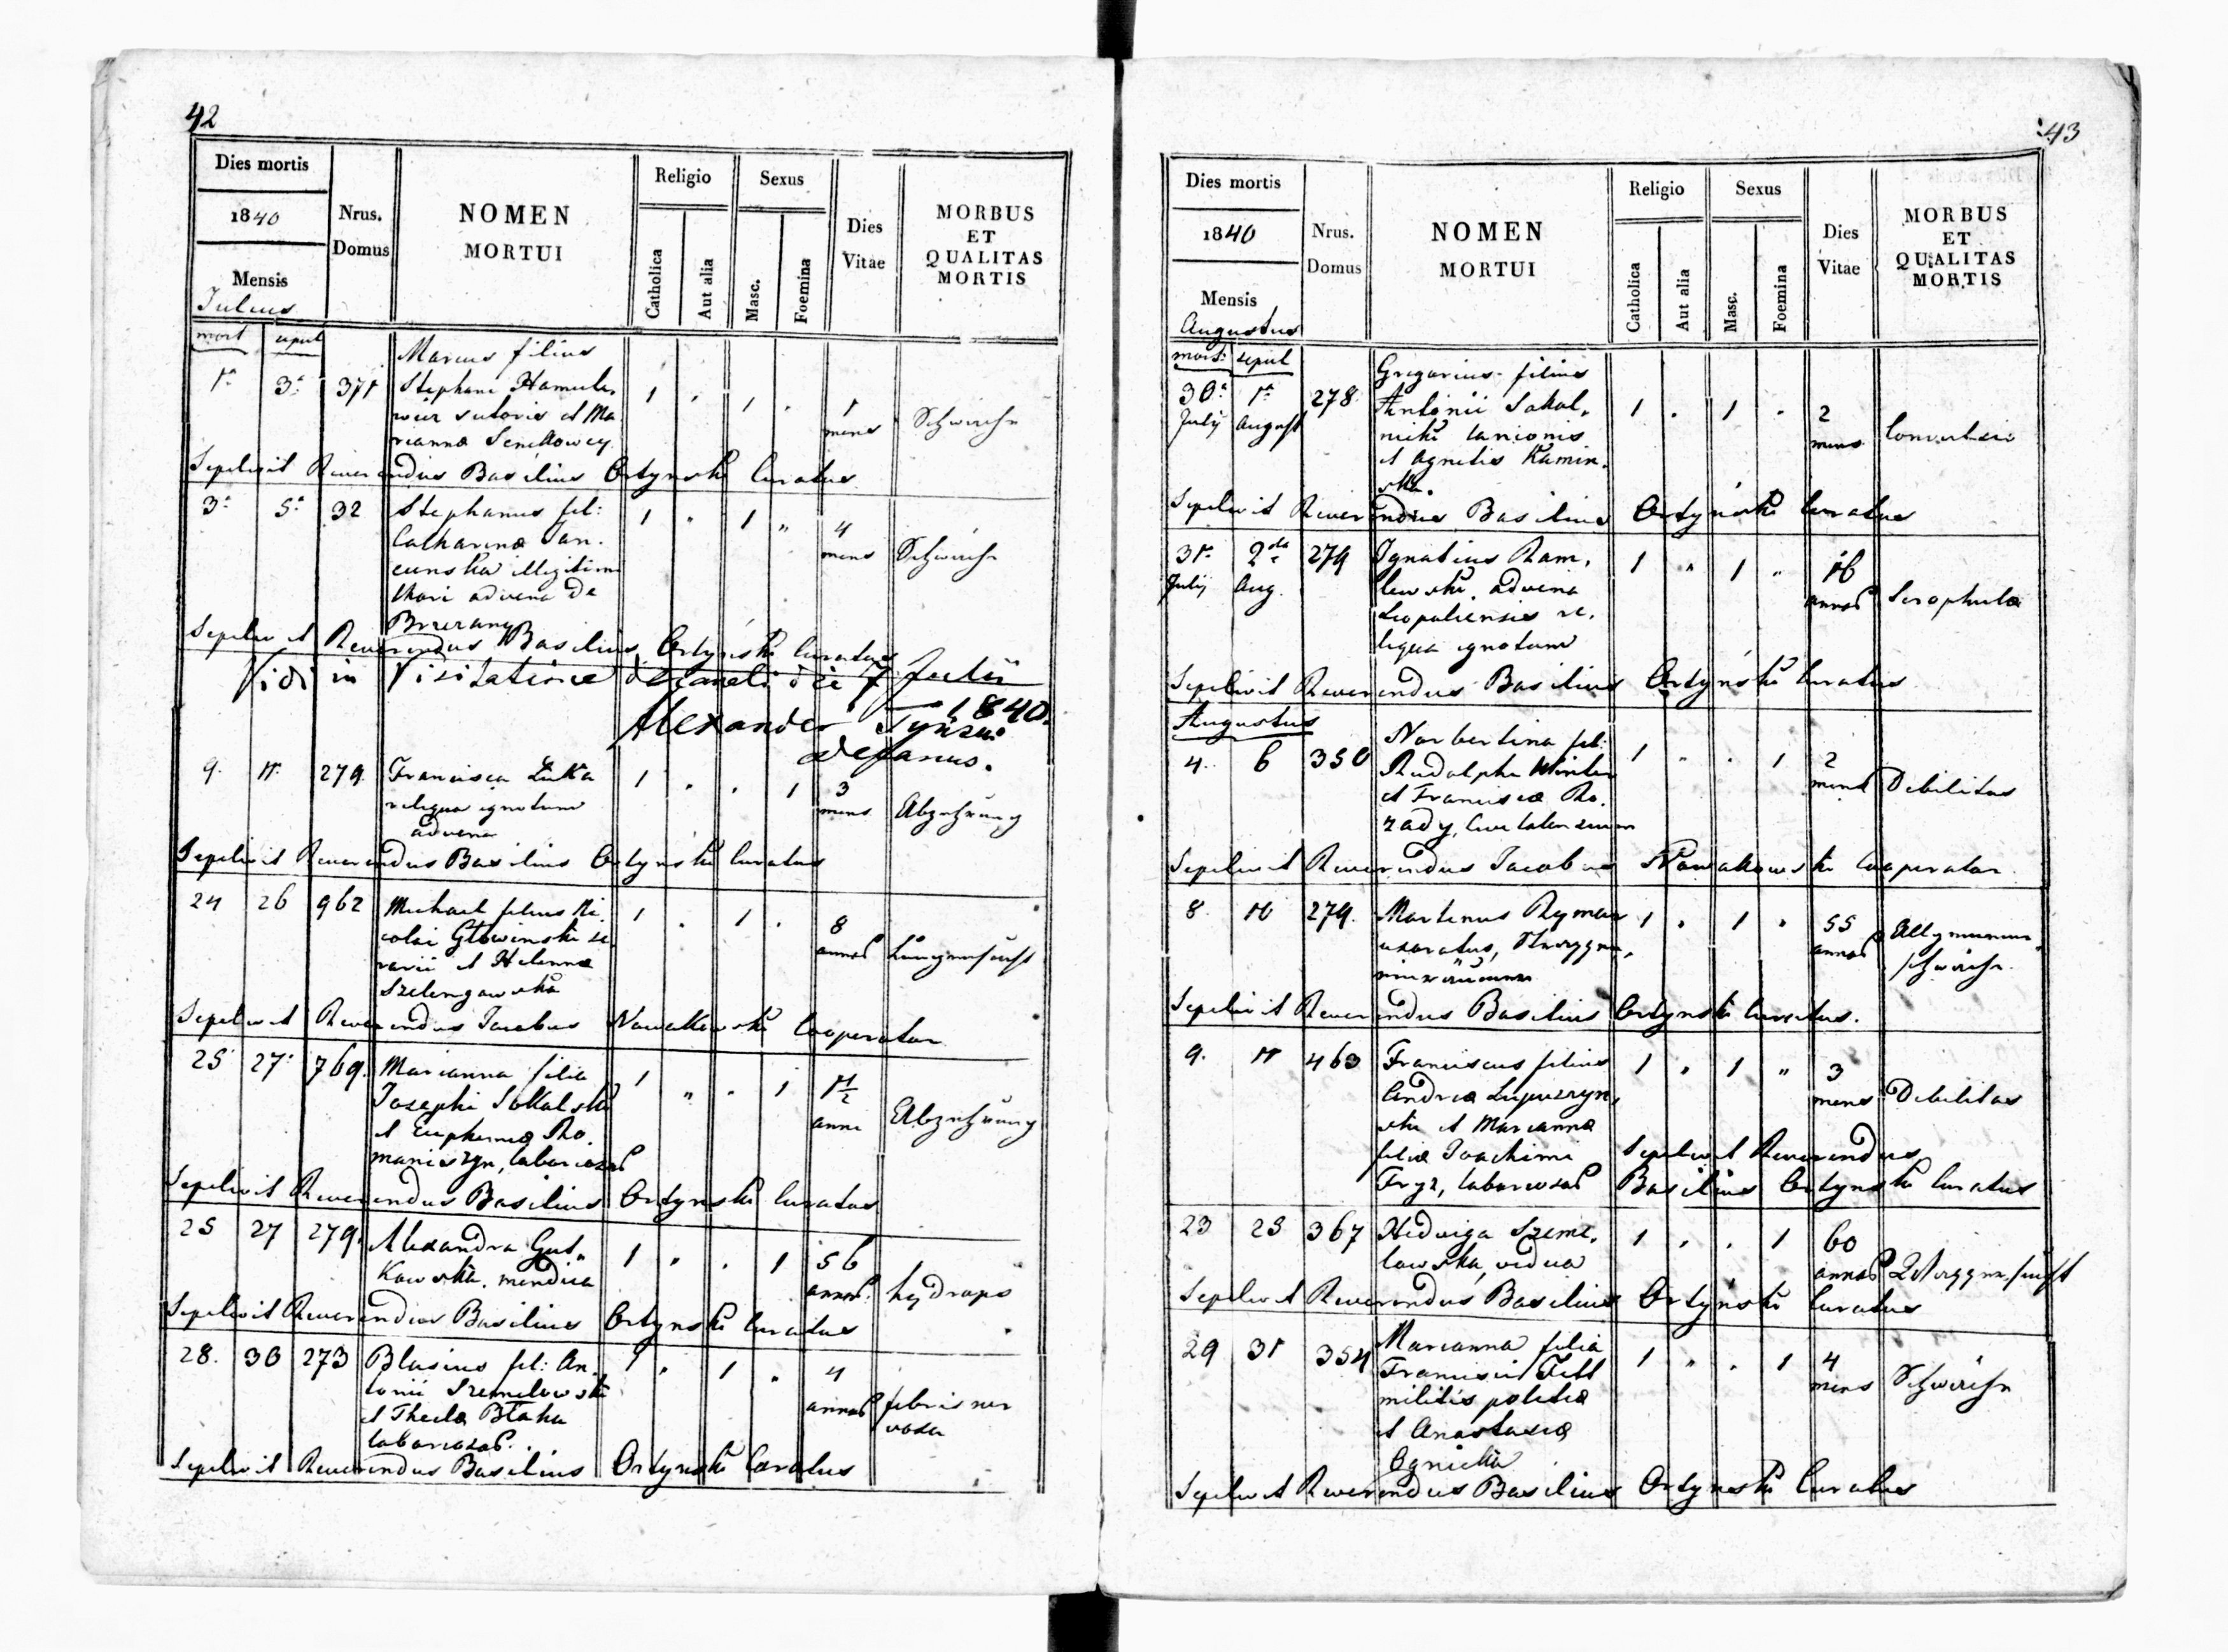 42
Dies mortis
1840
Mensis
Julius
Nrus.
Domus
NOMEN
MORTUI
Religio
Catholica
Aut alia
Sexus
Masc.
Foemina
Dies
Vitae
MORBUS
ET
QUALITAS
MORTIS
mort sepul
Marcus filius
1a 3a 371 Stephani Hamule, 1 " 1 " 1
wicz sutoris et Ma mens Schwäche
rianna Senkowcy
Sepelivit Reverendus Basilius Ortynski Curatus
3a 5a 32 Stephanus fil: 1 " 1 " 4
Catharina Jan. mens Schwäche
cunska illegitimi
thori advena de
Brzezany
Sepelivit Reverendus Basilius Ortynski Curatus
Vidi in Visitatione decanali die 7 Julii
1840.
Alexander
Decanus.
9. 11. 279. Francisca Luka 1 " " 1 3
reliqua ignotum mens Abzehrung
advena
Sepelivit Reverendus Basilius Ortynski Curatus
24 26 962 Michael filius Ni, 1 " 1 " 8
colai Głowinski annos Lungensucht
et Helenna
Szelengowska
Sepelivit Reverendus Jacobus Nowakowski Cooperator
25 27. 769. Marianna filia 1 " " 1 1 1/2
Josephi Sokalski anni Abzehrung
et Euphemia Ro.
maniszyn, laboriosas
Sepelivit Reverendus Basilius Ortynski Curatus
25 27 279. Alexandra Gut, 1 " " 1 56
kowska, mendica annos. hydrops
Sepelivit Reverendus Basilius Ortynski Curatus
28. 30 273 Blasius fil: An, 1 " 1 " 4
tonii Szemelowski annos febris ner
et Thecla Błaha vosa
laboriosas.
Sepelivit Reverendus Basilius Ortynski Curatus
43
Dies mortis
1840
Mensis
Augustus
Nrus.
Domus
NOMEN
MORTUI
Religio
Catholica
Aut alia
Sexus
Masc.
Foemina
Dies
Vitae
MORBUS
ET
QUALITAS
MORTIS
mort: sepul
Gregorius filius
30a 1a 278. Antonii Sokol, 1 " 1 " 2
July August nicki lanionis mens Convulsio
et Agnetis Kamin,
ska.
Sepelivit Reverendus Basilius Ortynski Curatus
31a 2da 279 Ignatius Ram, 1 " 1 " 16
July Aug. lewski, advena annos Scrophula
Leopoliensis re,
liqua ignotum
Sepelivit Reverendus Basilius Ortynski Curatus
Augustus
Norbertina fil:
4. 6 350 Rudolphi Winter 1 " " 1 2
et Francisca Ro. mens Debilitas
zady,
Sepelivit Reverendus Jacobus Nowakowski Cooperator
8. 10 279. Martinus Rymar 1 " 1 " 55
uxoratus, annos Allgemeine
schwäche.
Sepelivit Reverendus Basilius Ortynski Curatus.
9. 11 463 Franciscus filius 1 " 1 " 3
Andrea Lipuszyn, mens Debilitas
ski et Marianna
filia Joachimi Sepelivit Reverendus
Fryz, laboriosas Basilius Ortynski Curatus
23 25 367 Hedviga Szeme, 1 " " 1 60
lowska, vidua annos
Sepelivit Reverendus Basilius Ortynski Curatus
29 31 354 Marianna filia 1 " " 1 4
Francisci Fell mens Schwäche
militis politia
et Anastasia
Ognicka
Sepelivit Reverendus Basilius Ortynski Curatus